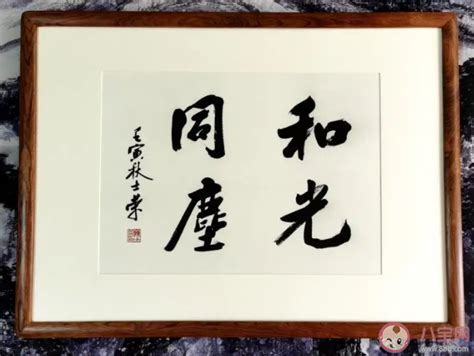 和光
同塵
壬寅秋士荣
八宝网